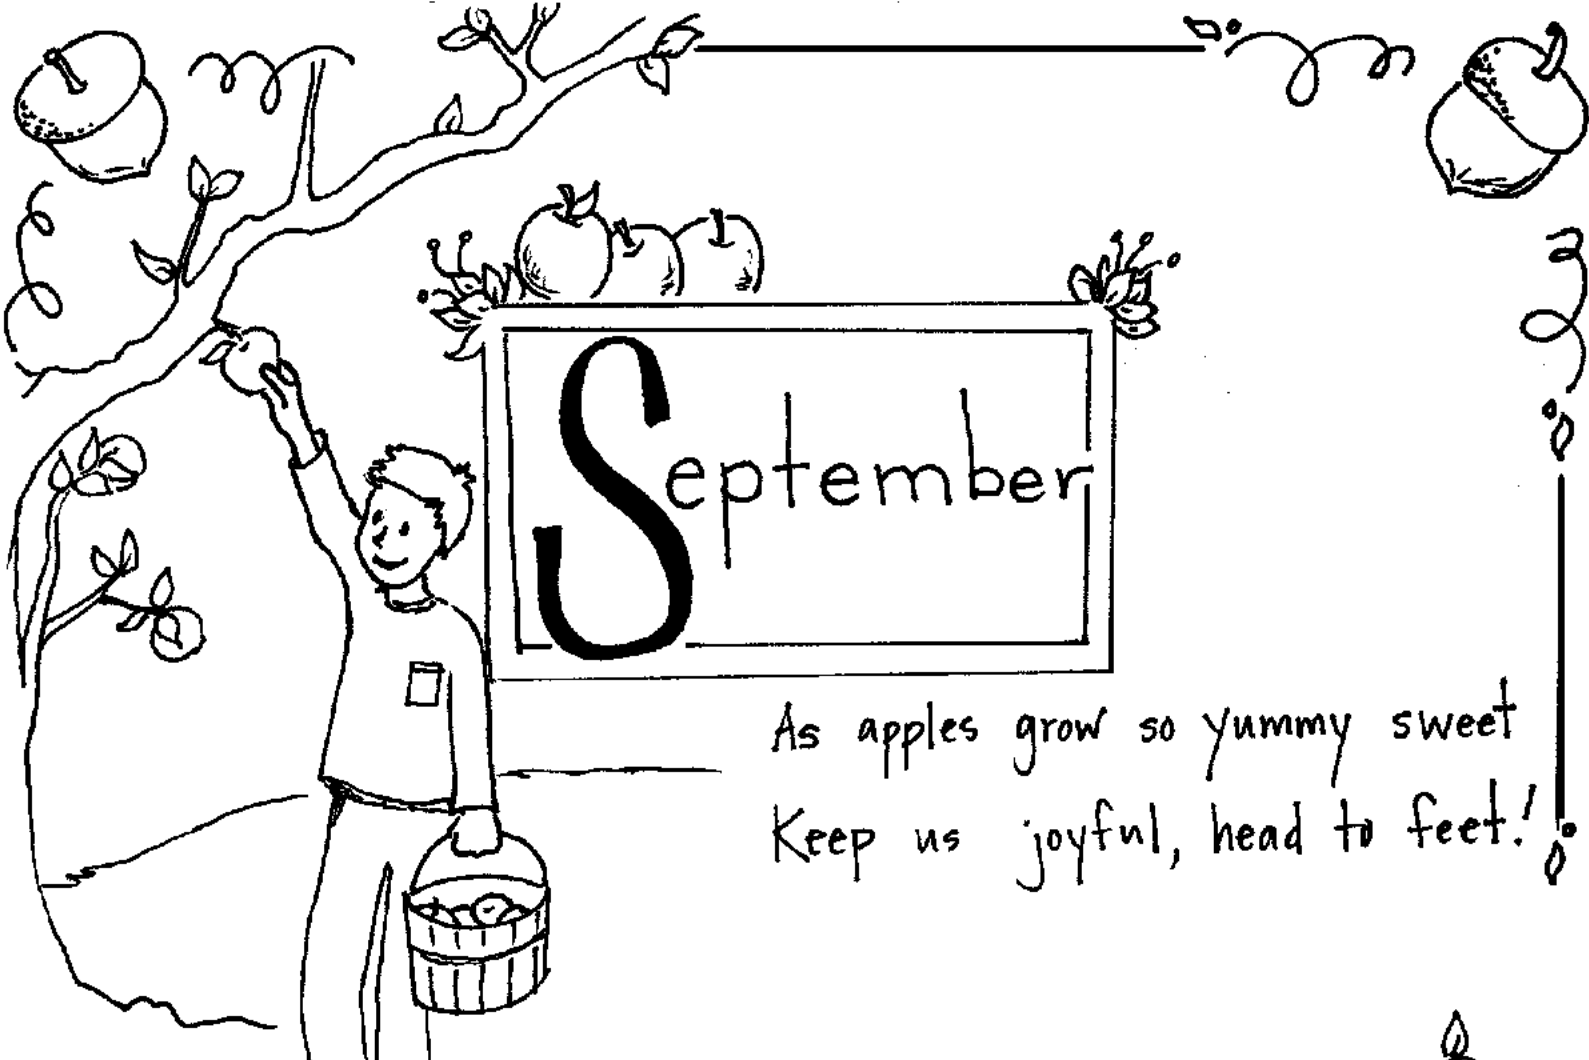 September
As apples grow so yummy sweet
Keep us joyful, head to feet!